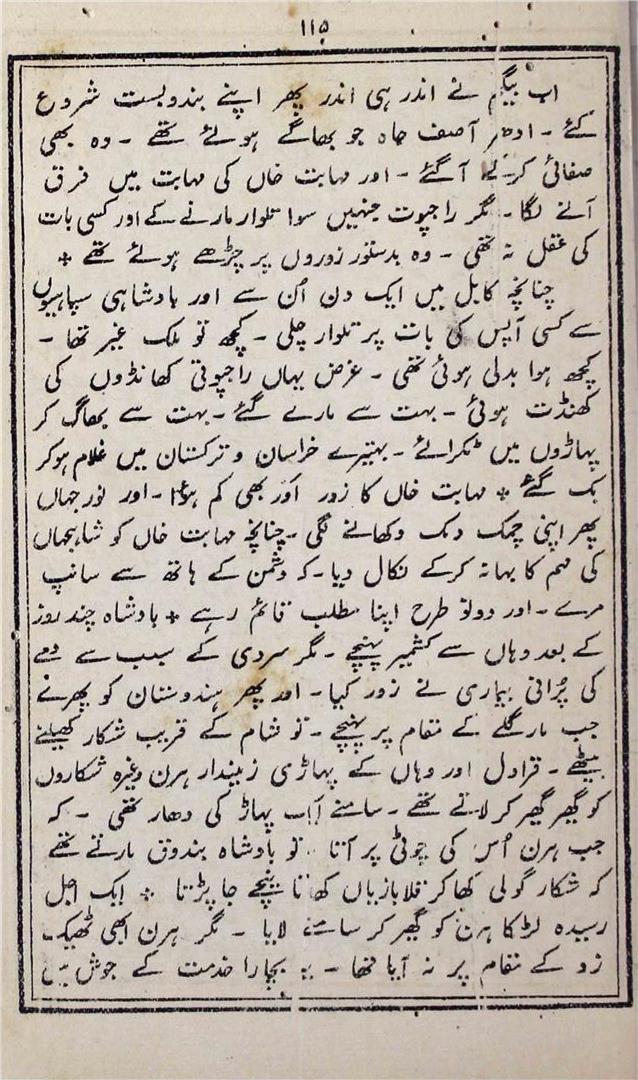 ۱۱۵
اب بیگم نے اندر ہی اندر پھر اپنے بندوبست شروع
کئے ۔ ادھر آصف جاہ جو بھاگے ہوئے تھے ۔ وہ بھی
صفائی کرکے آ گئے ۔ اور مہابت خاں کی مہابت میں فرق
آنے لگا ۔ مگر راجپوت جنہیں سوا تلوار مارنے کے اور کسی بات
کی عقل نہ تھی ۔ وہ بدستور زوروں پر چڑھے ہوئے تھے +
چنانچہ کابل میں ایک دن اُن سے اور بادشاہی سپاہیوں
سے کسی آپس کی بات پر تلوار چلی ۔ کچھ تو ملک غیر تھا ۔
کچھ ہوا بدلی ہوئی تھی ۔ غرض یہاں راجپوتی کھانڈوں کی
کھنڈت ہوئی ۔ بہت سے مارے گئے ۔ بہت سے بھاگ کر
پہاڑوں میں ٹکرائے ۔ بہتیرے خراسان و ترکستان میں غلام ہوکر
بک گئے + مہابت خاں کا زور اور بھی کم ہوا ۔ اور نورجہاں
پھر اپنی چمک دمک دکھانے لگی ۔ چنانچہ مہابت خاں کو شاہجہاں
کی مہم کا بہانہ کرکے نکال دیا ۔ کہ دشمن کے ہاتھ سے سانپ
مرے ۔ اور دونو طرح اپنا مطلب قائم رہے + بادشاہ چند روز
کے بعد وہاں سے کشمیر پہنچے ۔ مگر سردی کے سبب سے دمے
کی پُرانی بیماری نے زور کیا ۔ اور پھر ہندوستان کو پھرنے
جب مارگلے کے مقام پر پہنچے ۔ تو شام کے قریب شکار کھیلنے
بیٹھے ۔ قراول اور وہاں کے پہاڑی زمیندار ہرن وغیرہ شکاروں
کو گھیر گھیر کر لاتے تھے ۔ سامنے ایک پہاڑ کی دھار تھی ۔ کہ
جب ہرن اُس کی چوٹی پر آتا ۔ تو بادشاہ بندوق مارتے تھے
کہ شکار گولی کھا کر قلابازیاں کھاتا نیچے جا پڑتا + ایک اجل
رسیدہ لڑکا ہرن کو گھیر کر سامنے لایا ۔ مگر ہرن ابھی ٹھیک
زد کے مقام پر نہ آیا تھا ۔ یہ بچارا خدمت کے جوش میں